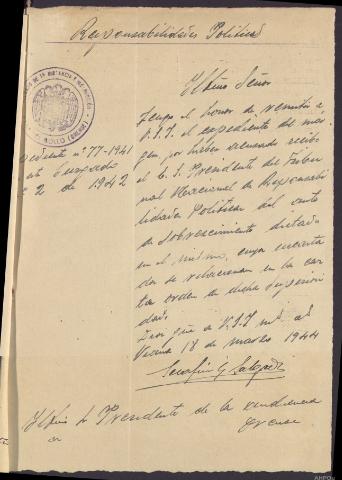 Responsabilidades Politicas
Iltmo Señor
Tengo el honor de remitir a
V.I.I. el expediente del mar-
gen por haber acusado recibo
el E. S. Presidente del Tribu-
nal Nacional de Responsabi-
lidades Politicas del auto
de Sobreseimiento dictado
en el mismo, cuyo
se relacionan en la car-
ta orden de dicha Superiori
dad.
Dios gue a V.I.I. m. a.
Viana 18 de marzo 1944
Serafin G Salgado
Expediente nº 77-1941
Juzgado
2 de 1942
Iltmo Sr Presidente de la Audiencia
Orense
AHPOu